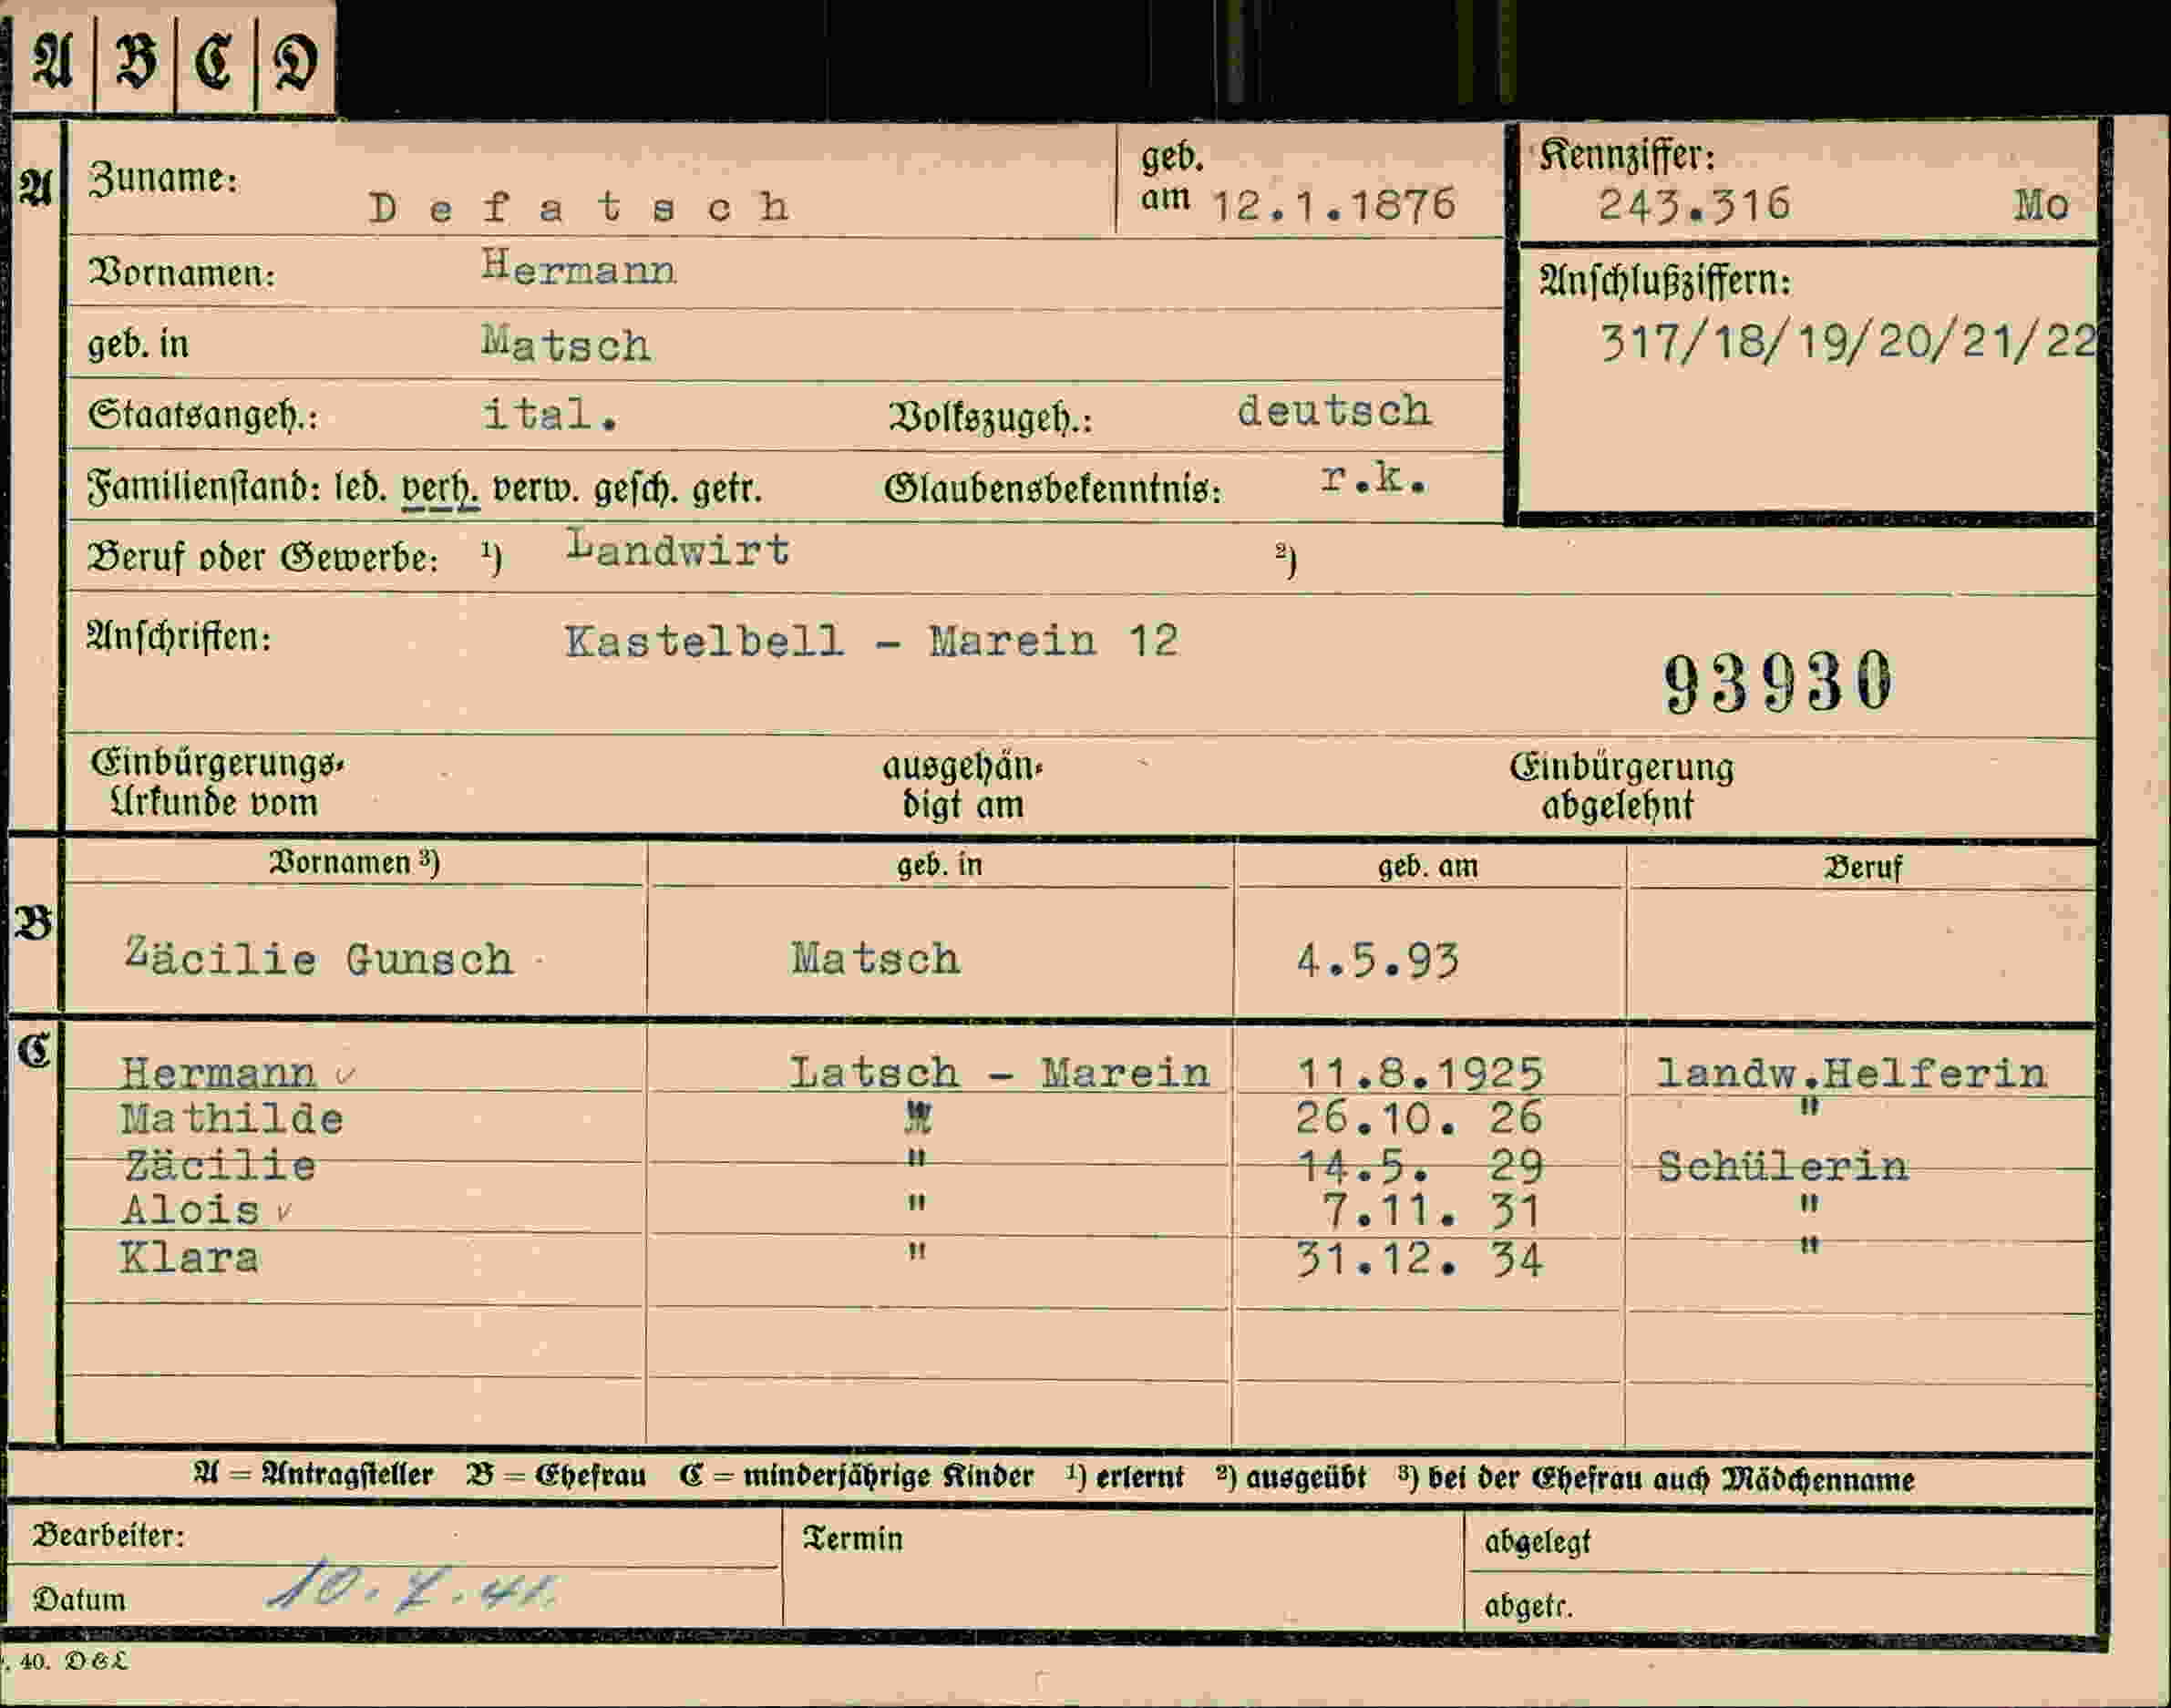 A B C D
A Zuname: Defatsch geb. am 12.1.1876 Kennziffer: 243.316 Mo
Vornamen: Hermann Anschlußziffern:
geb. in Matsch 317/18/19/20/21/22
Staatsangeh.: ital. Volkszugeh.: deutsch
Familienstand: led. verh. verw. gesch. getr. Glaubensbekenntnis: r.k.
Beruf oder Gewerbe: ¹) Landwirt ²)
Anschriften: Kastelbell - Marein 12
93930
Einbürgerungs- ausgehän- Einbürgerung
Urkunde vom digt am abgelehnt
Vornamen ³) geb. in geb. am Beruf
B Zäcilie Gunsch Matsch 4.5.93
C Hermann v Latsch - Marein 11.8.1925 landw.Helferin
Mathilde " 26.10. 26 "
Zäcilie " 14.5. 29 Schülerin
Alois v " 7.11. 31 "
Klara " 31.12. 34 "
A = Antragsteller B = Ehefrau C = minderjährige Kinder ¹) erlernt ²) ausgeübt ³) bei der Ehefrau auch Mädchenname
Bearbeiter: Termin abgelegt
Datum 10.7.41. abgetr.
. 40. D & L